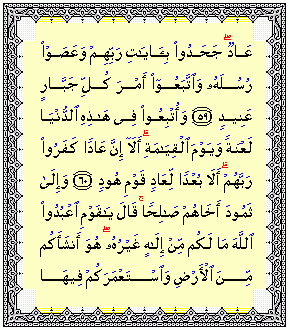 عَادٌ ۖ جَحَدُوا۟ بِـَٔايَـٰتِ رَبِّهِمْ وَعَصَوْا۟
رُسُلَهُۥ وَٱتَّبَعُوٓا۟ أَمْرَ كُلِّ جَبَّارٍ
عَنِيدٍ ﴿٥٩﴾ وَأُتْبِعُوا۟ فِى هَـٰذِهِ ٱلدُّنْيَا
لَعْنَةً وَيَوْمَ ٱلْقِيَـٰمَةِ ۗ أَلَآ إِنَّ عَادًا كَفَرُوا۟
رَبَّهُمْ ۗ أَلَا بُعْدًا لِّعَادٍ قَوْمِ هُودٍ ﴿٦٠﴾ وَإِلَىٰ
ثَمُودَ أَخَاهُمْ صَـٰلِحًا ۚ قَالَ يَـٰقَوْمِ ٱعْبُدُوا۟
ٱللَّهَ مَا لَكُم مِّنْ إِلَـٰهٍ غَيْرُهُۥ ۖ هُوَ أَنشَأَكُم
مِّنَ ٱلْأَرْضِ وَٱسْتَعْمَرَكُمْ فِيهَا